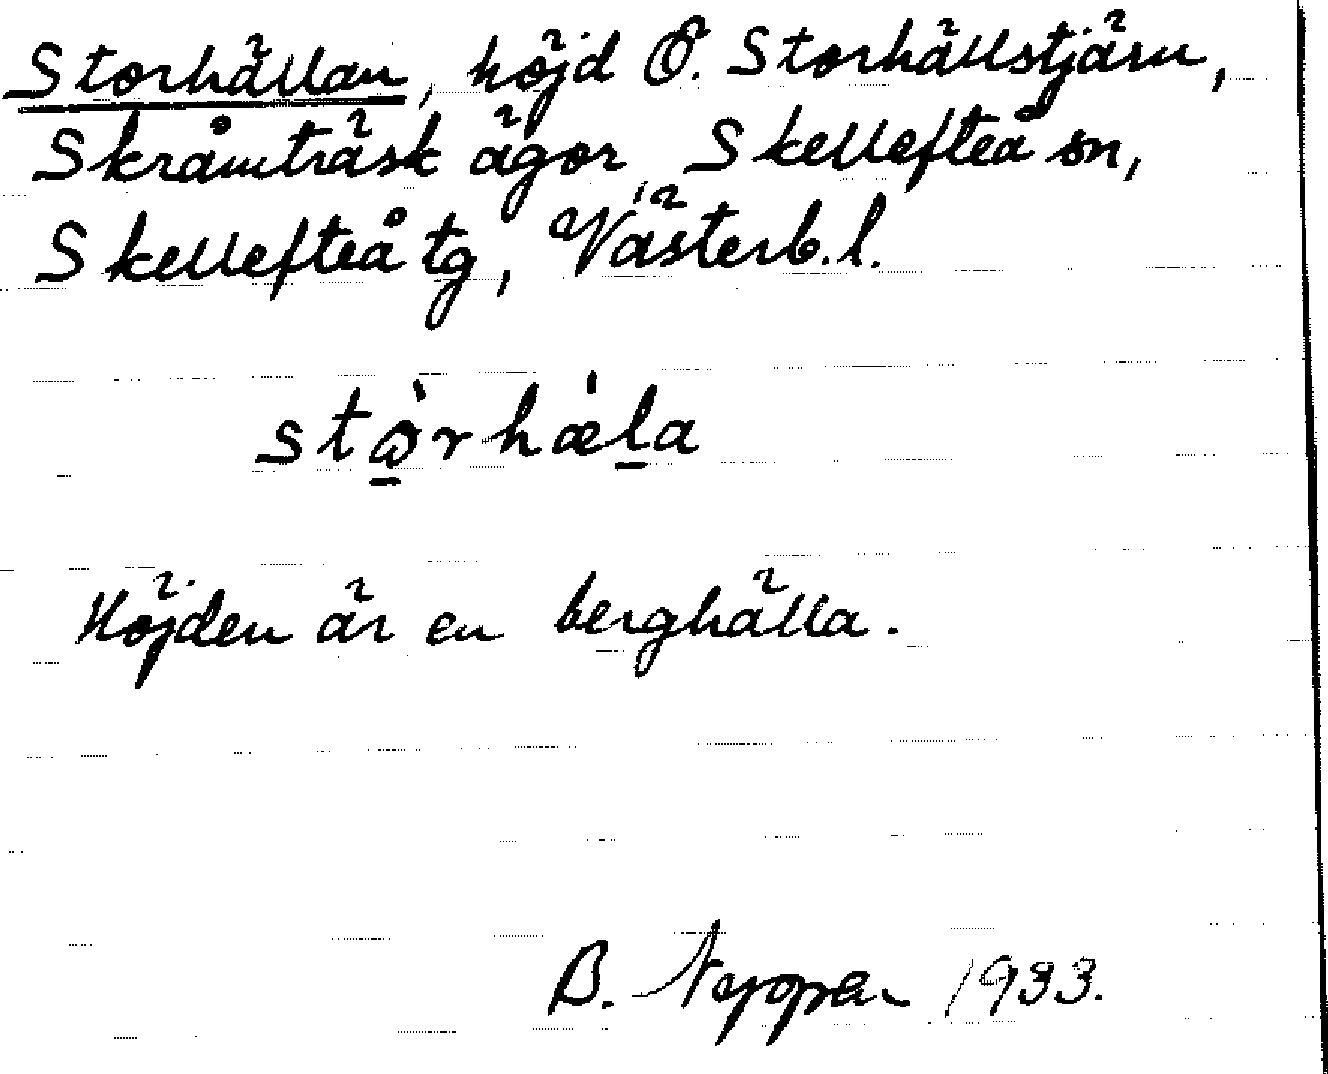 Storhällan, höjd Ö. Storhällstjärn,
Skråmträsk ägor, Skellefteå sn,
Skellefteå tg, Västerb. l.
Höjden är en berghälla.
B. 1933.